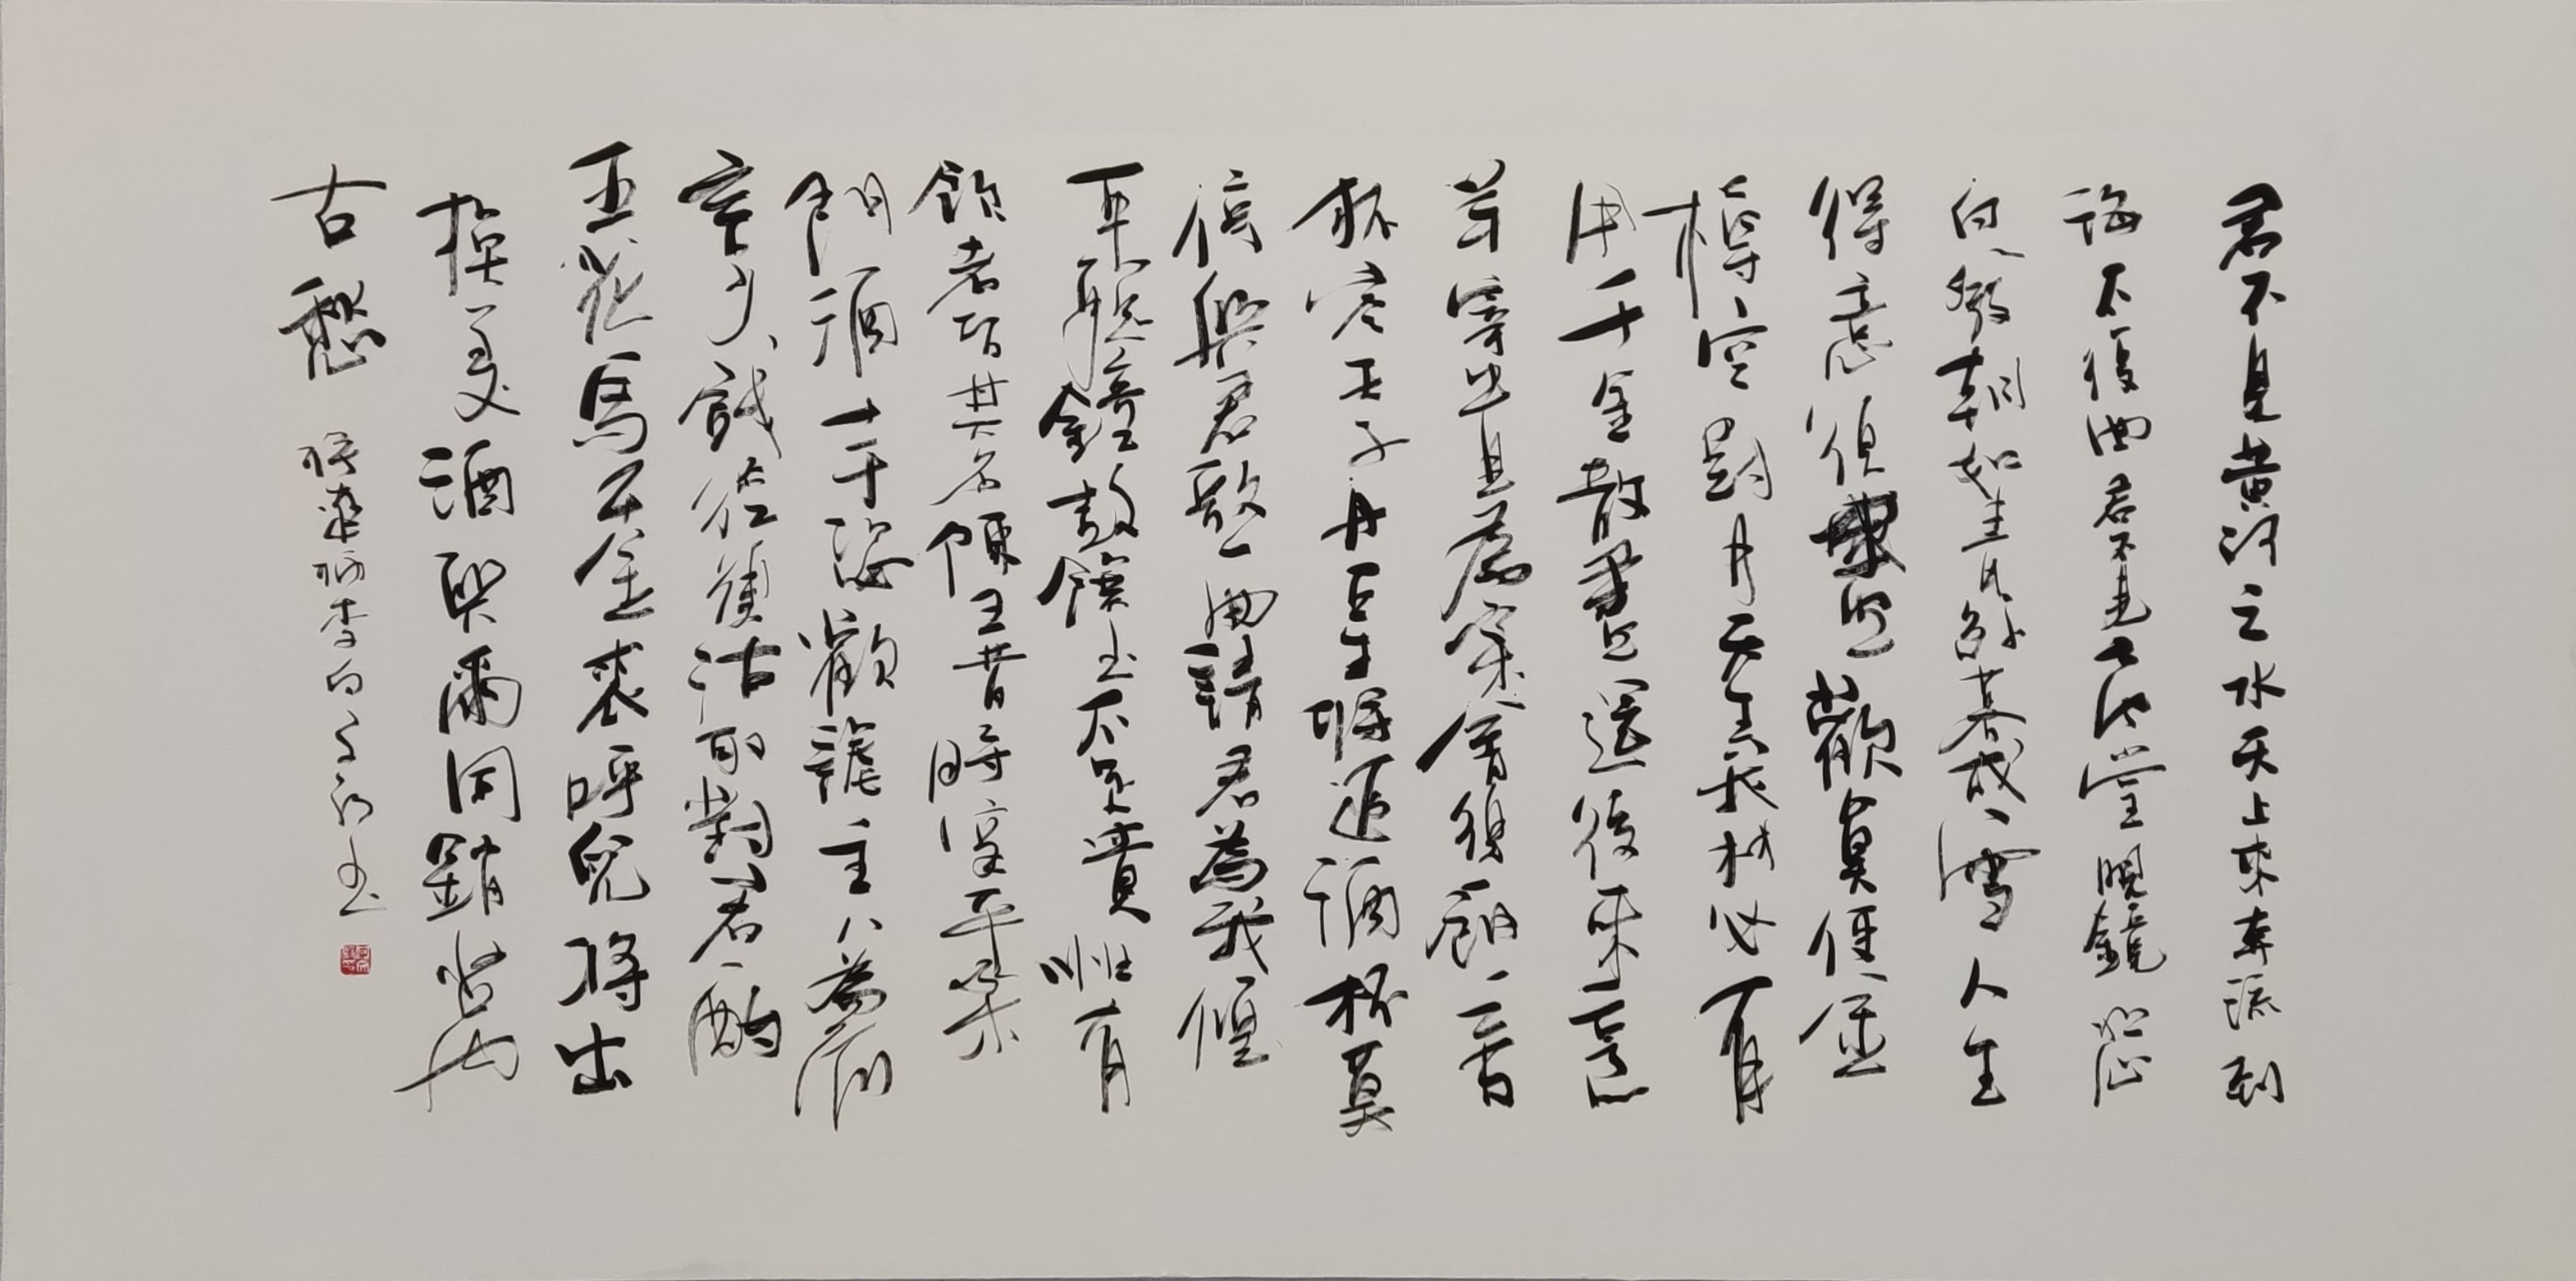 君不見黃河之水天上來奔流到
海不復回君不見高堂明鏡悲
白髮朝如青絲暮成雪人生
得意須盡歡莫使金
樽空對月天生我材必有
用千金散盡還復來烹
羊宰牛且為樂會須一飲三百
杯岑夫子丹丘生將進酒杯莫
停與君歌一曲請君為我傾
耳聽鐘鼓饌玉不足貴唯有
飲者留其名陳王昔時宴平樂
斗酒十千恣歡謔主人為何
言少錢徑須沽取對君酌
五花馬千金裘呼兒將出
換美酒與爾同銷萬
古愁 李白